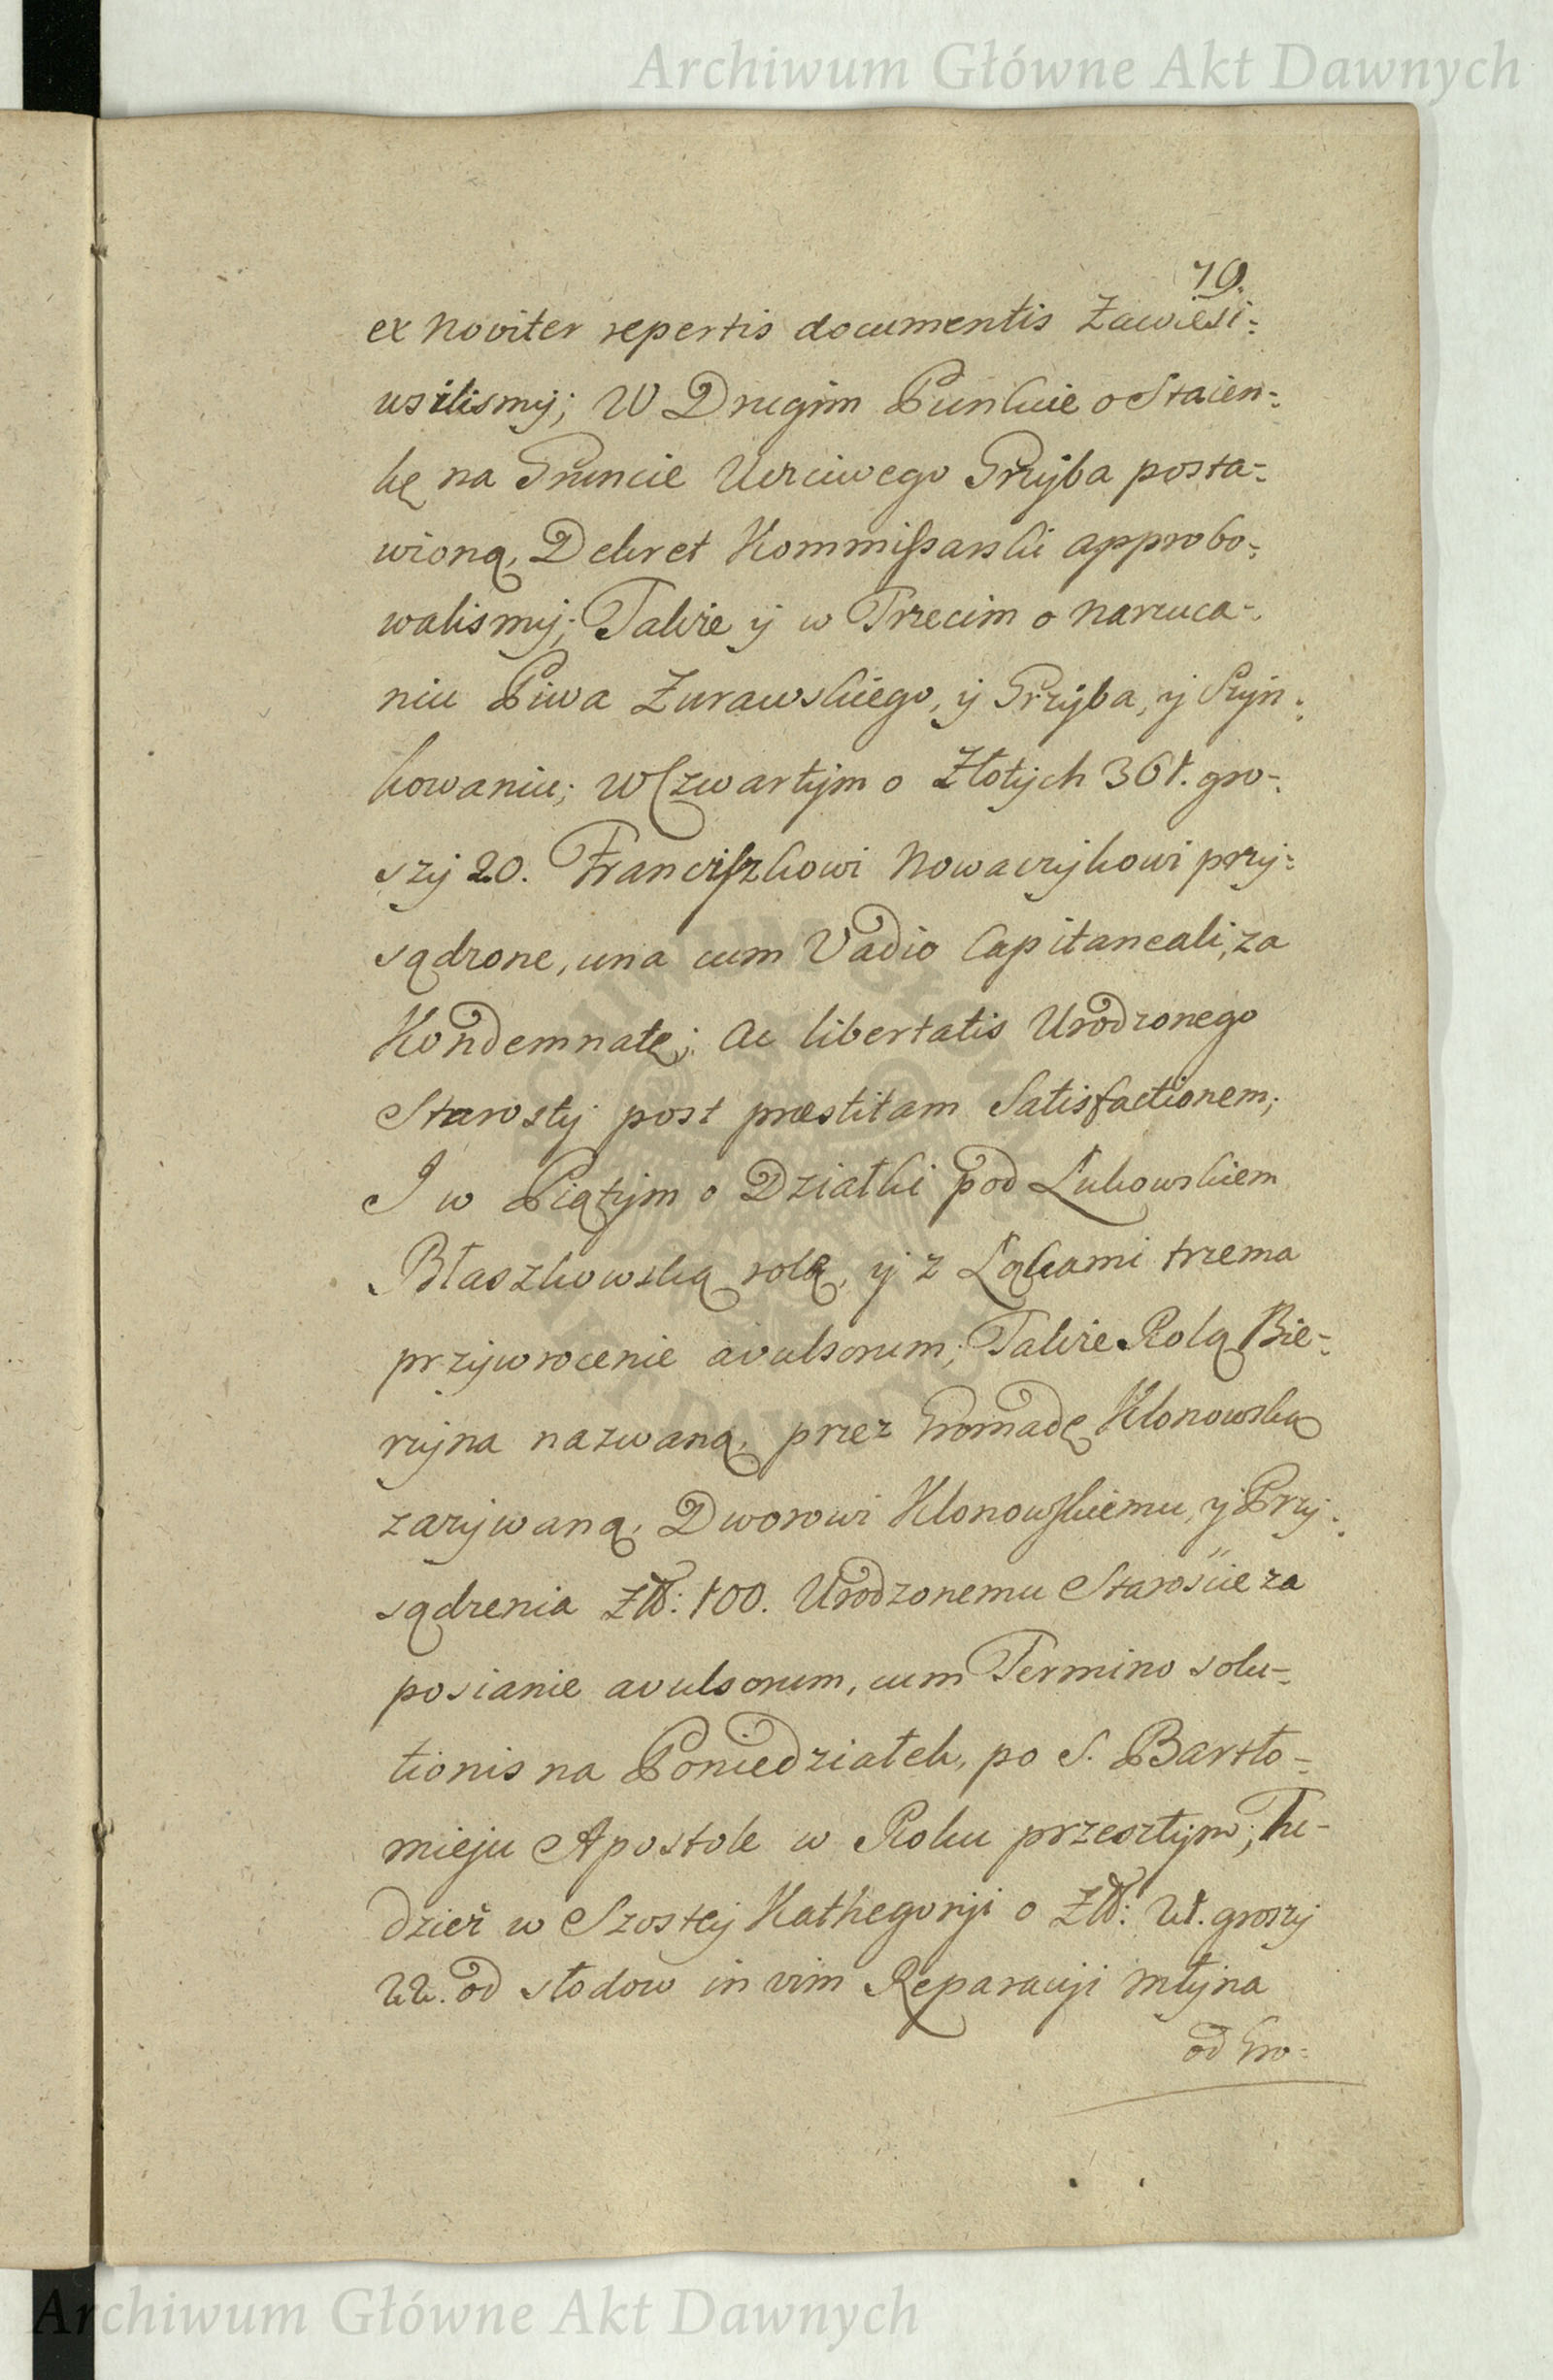 Archiwum Główne Akt Dawnych
79.
ex noviter repertis documentis Zawiesi-
usilismy; W Drugim Punkcie o Staien-
kę na Gruncie Uczciwego Grzyba posta-
wioną, Dekret Kommissarski approbo-
walismy; Takze y w Trzecim o narzuca-
niu Piwa Zurawskiego, y Grzyba, y Szyn-
kowaniu; W Czwartym o Złotych 361. gro-
szy 20. Franciszkowi Nowaczykowi przy-
sądzone, una cum Vadio Capitaneali, za
Kondemnatę; Ac libertatis Urodzonego
Starosty post præstitam Satisfactionem;
I w Piątym o Działki pod Łukowskiem
Błaszkowską rolą, y z Łąkami trzema
przywrocenie avulsorum; Takze Rolą Bie-
rzyna nazwaną, przez Gromadę Klonowską
zazywaną, Dworowi Klonowskiemu, y Przy-
sądzenia Złł: 100. Urodzonemu Staroscie za
posianie avulsorum, cum Termino solu-
tionis na Poniedziałek, po S. Bartło-
mieju Apostole w Roku przeszłym; Tu-
dziesz w Szostey Kathegoryi o Złł: 21. groszy
22. od słodow in vim Reparacyi młyna
od Gro-
Archiwum Główne Akt Dawnych